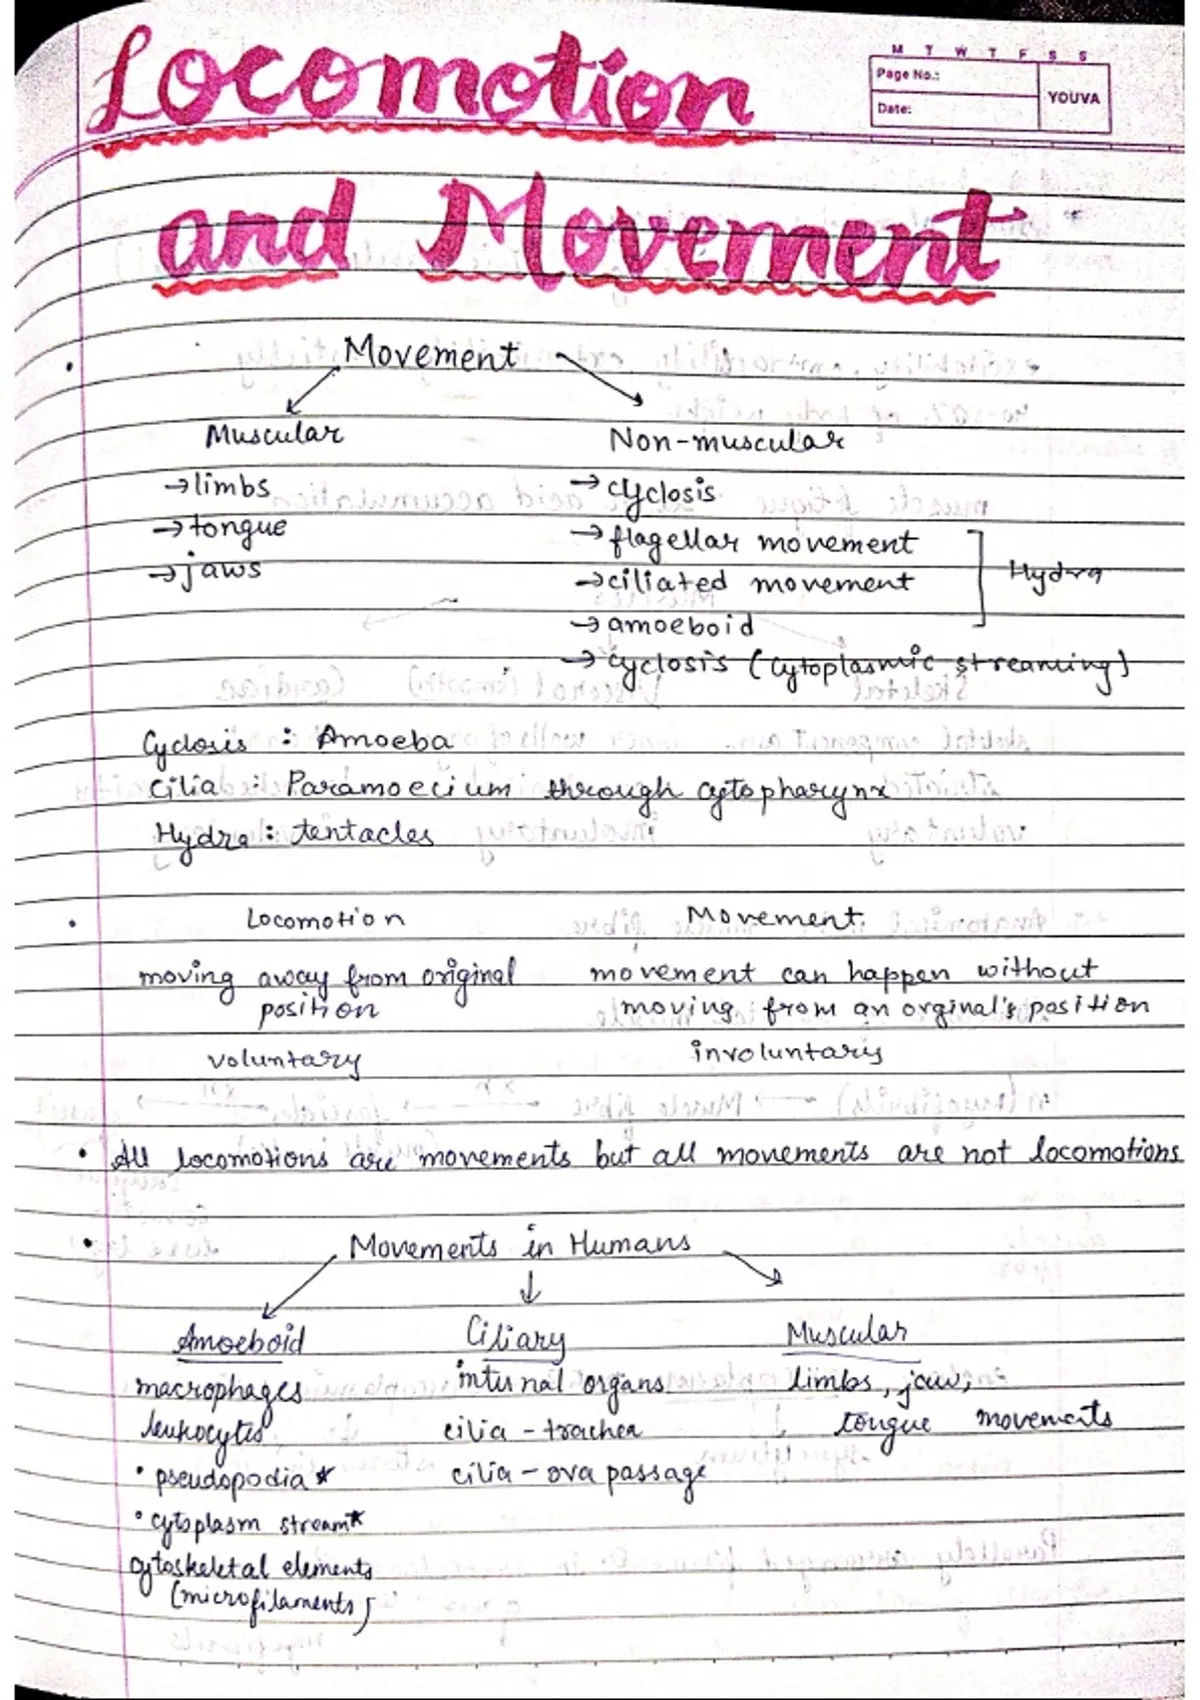 Locomotion
M T W T F S S
Page No.:
Date:
YOUVA
and Movement
• Movement
Muscular Non-muscular
→ limbs → cyclosis
→ tongue → flagellar movement
→ jaws → ciliated movement Hydra
→ amoeboid
→ cyclosis (cytoplasmic streaming)
Cyclosis : Amoeba
Cilia : Paramoecium through cytopharynx
Hydra : tentacles
• Locomotion Movement
moving away from original movement can happen without
position moving from an orginal's position
voluntary involuntary
• All locomotions are movements but all movements are not locomotions
• Movements in Humans
Amoeboid Ciliary Muscular
macrophages internal organs limbs, jaw,
leukocytes cilia - trachea tongue movements
• pseudopodia * cilia - ova passage
• cytoplasm stream*
cytoskeletal elements
(microfilaments)